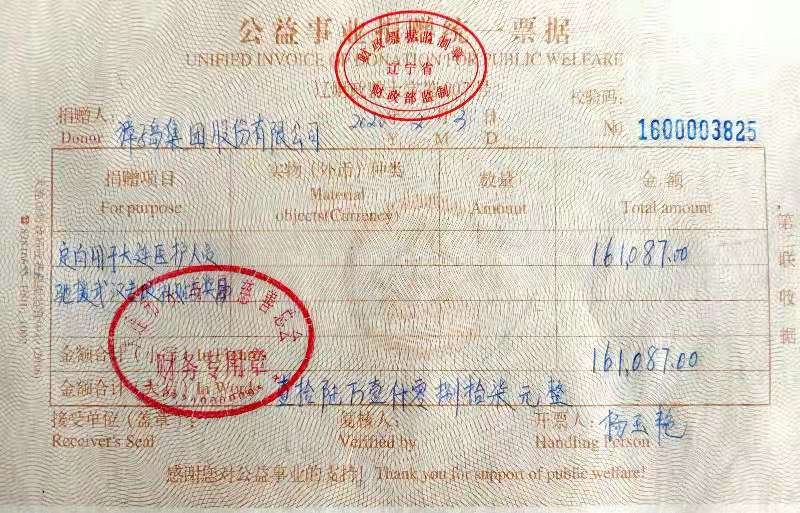 公益事业捐赠统一票据
UNIFIED INVOICE OF DONATION FOR PUBLIC WELFARE
财政票据监制章
辽宁省
财政部监制
捐赠人: 集团股份有限公司 2020 2 3 日 校验码:
Donor Y M D No 1600003825
捐赠项目 实物(外币)种类 数量 金额
For purpose Material objects(Currency) Amount Total amount
定向用于大连医护人员 161,087.00
驰援武汉
金额合计(小写) In Figures 161,087.00
金额合计(大写) In Words 壹拾陆万壹仟零捌拾柒元整
财务专用章
接受单位(盖章): 复核人: 开票人: 杨玉艳
Receiver's Seal Verified by Handling Person
感谢您对公益事业的支持! Thank you for support of public welfare!
第 联 收据